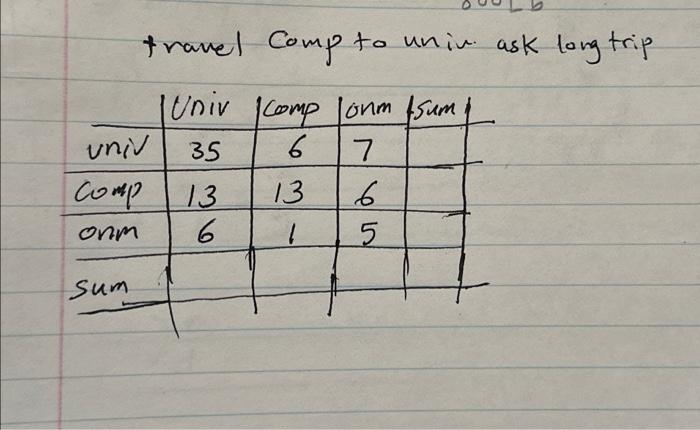 travel Comp to univ ask long trip
Univ Comp onm Sum
univ 35 6 7
Comp 13 13 6
onm 6 1 5
sum